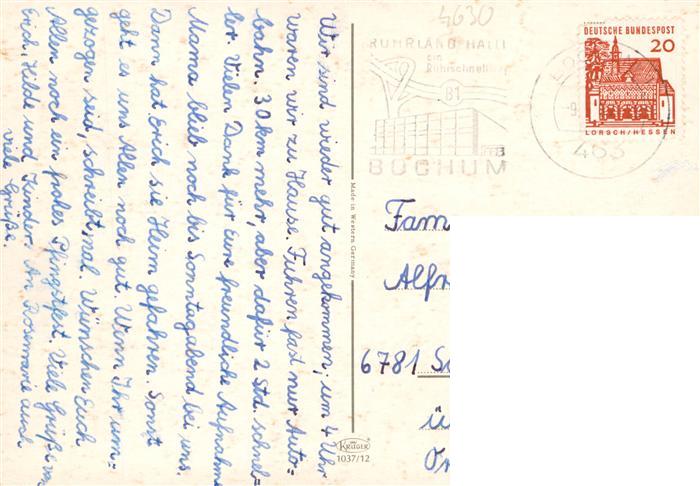 Wir sind wieder gut angekommen, um 4 Uhr
waren wir zu Hause. Fuhren fast nur Auto=
bahn. 30 km mehr, aber dafür 2 Std. schnel=
ler. Vielen Dank für Eure freundliche Aufnahme
Mama blieb noch bis Sonntagabend bei uns.
Dann hat Erich sie Heim gefahren. Sonst
geht es uns Allen noch gut. Wenn Ihr um=
gezogen seid, schreibt mal. Wünschen Euch
Allen noch ein frohes Pfingstfest. Viele Grüße von
Erich, Hilde und Kinder. An Rosemarie auch
viele Grüße.
Made in Western Germany
KRÜGER
1037/12
4630
RUHRLAND HALLE
ein
Ruhrschnellweg
81
BOCHUM
463
DEUTSCHE BUNDESPOST
20
LORSCH/HESSEN
Fam
Alfr
6781
ü